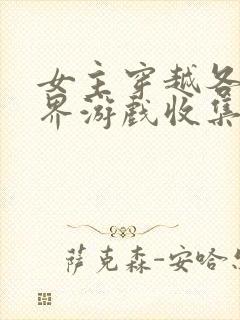 女主穿越各
界游戏收集
萨克森-安哈